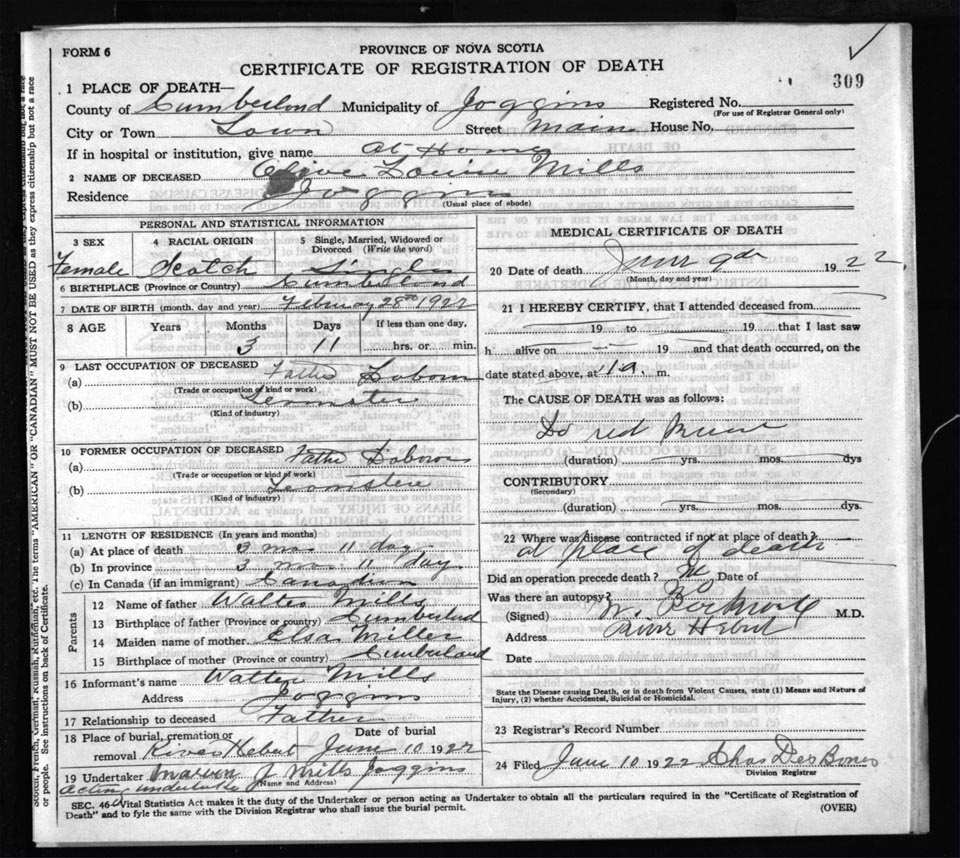 FORM 6
PROVINCE OF NOVA SCOTIA
CERTIFICATE OF REGISTRATION OF DEATH
309
1 PLACE OF DEATH—
County of Cumberland Municipality of Joggins Registered No.
(For use of Registrar General only)
City or Town Town Street Main House No.
If in hospital or institution, give name at Home
2 NAME OF DECEASED Olive Louise Mills
Residence Joggins
(Usual place of abode)
PERSONAL AND STATISTICAL INFORMATION
3 SEX 4 RACIAL ORIGIN 5 Single, Married, Widowed or Divorced (Write the word)
Female Scotch Single
6 BIRTHPLACE (Province or Country) Cumberland
7 DATE OF BIRTH (month, day and year) February 28th 1922
8 AGE Years Months Days If less than one day,
3 11 hrs. or min.
9 LAST OCCUPATION OF DECEASED
(a) Father
(Trade or occupation of kind or work)
(b)
(Kind of industry)
10 FORMER OCCUPATION OF DECEASED
(a) Father
(Trade or occupation of kind or work)
(b)
(Kind of industry)
11 LENGTH OF RESIDENCE (In years and months)
(a) At place of death 3 mos 11 day
(b) In province 3 mos 11 day
(c) In Canada (if an immigrant) Canadian
Parents
12 Name of father Walter Mills
13 Birthplace of father (Province or country) Cumberland
14 Maiden name of mother Elsa Miller
15 Birthplace of mother (Province or country) Cumberland
16 Informant's name Walter Mills
Address Joggins
17 Relationship to deceased Father
18 Place of burial, cremation or removal River Hebert Date of burial June 10 1922
19 Undertaker J Mills Joggins
(Name and Address)
acting undertaker
MEDICAL CERTIFICATE OF DEATH
20 Date of death June 9th 1922
(Month, day and year)
21 I HEREBY CERTIFY, that I attended deceased from
19 to 19 that I last saw
h alive on 19 and that death occurred, on the
date stated above, at 1 a. m.
The CAUSE OF DEATH was as follows:
(duration) yrs. mos. dys
CONTRIBUTORY
(Secondary)
(duration) yrs. mos. dys.
22 Where was disease contracted if not at place of death?
at place of death
Did an operation precede death? No Date of
Was there an autopsy? No
(Signed) W. M.D.
Address River Hebert
Date
State the Disease causing Death, or in death from Violent Causes, state (1) Means and Nature of Injury, (2) whether Accidental, Suicidal or Homicidal.
23 Registrar's Record Number
24 Filed June 10 1922 Chas Des
Division Registrar
SEC. 46—Vital Statistics Act makes it the duty of the Undertaker or person acting as Undertaker to obtain all the particulars required in the "Certificate of Registration of
Death" and to fyle the same with the Division Registrar who shall issue the burial permit.
(OVER)
Scotch, French, German, Russian, Ruthenian, etc. The terms "AMERICAN" OR "CANADIAN" MUST NOT BE USED as they express citizenship but not a race
or people. See instructions on back of Certificate.